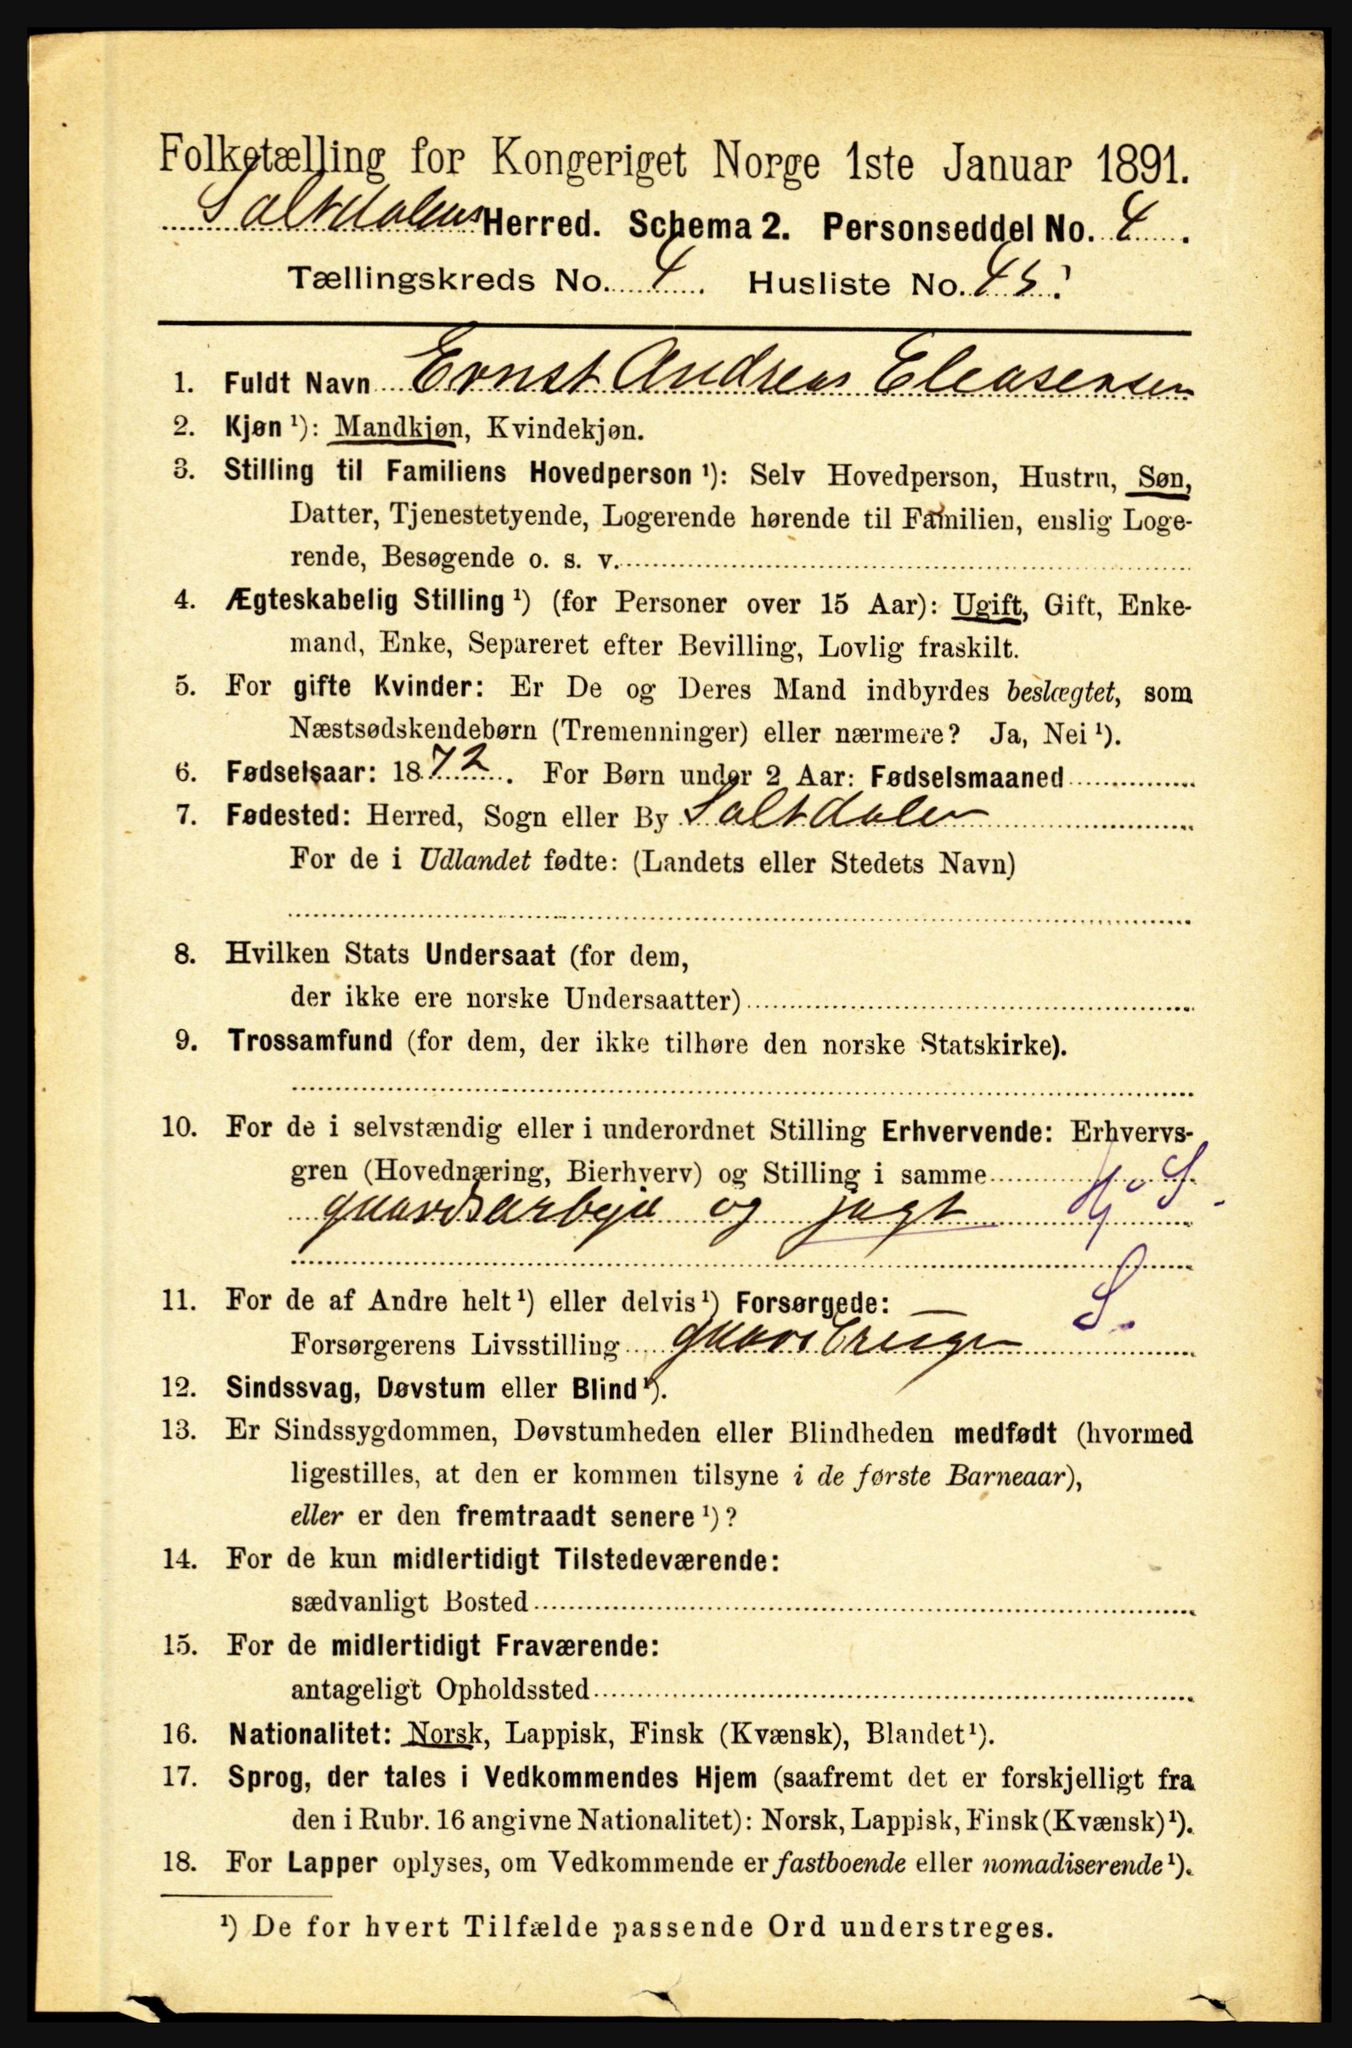 Folketælling for Kongeriget Norge 1ste Januar 1891.
Saltdalens Herred. Schema 2. Personseddel No. 4.
Tællingskreds No. 4. Husliste No. 45.
1. Fuldt Navn Ernst Andreas Eleasensen
2. Kjøn ¹): Mandkjøn, Kvindekjøn.
3. Stilling til Familiens Hovedperson ¹): Selv Hovedperson, Hustru, Søn,
Datter, Tjenestetyende, Logerende hørende til Familien, enslig Loge-
rende, Besøgende o. s. v.
4. Ægteskabelig Stilling ¹) (for Personer over 15 Aar): Ugift, Gift, Enke-
mand, Enke, Separeret efter Bevilling, Lovlig fraskilt.
5. For gifte Kvinder: Er De og Deres Mand indbyrdes beslægtet, som
Næstsødskendebørn (Tremenninger) eller nærmere? Ja, Nei ¹).
6. Fødselsaar: 1872. For Børn under 2 Aar: Fødselsmaaned
7. Fødested: Herred, Sogn eller By Saltdalen
For de i Udlandet fødte: (Landets eller Stedets Navn)
8. Hvilken Stats Undersaat (for dem,
der ikke ere norske Undersaatter)
9. Trossamfund (for dem, der ikke tilhøre den norske Statskirke).
10. For de i selvstændig eller i underordnet Stilling Erhvervende: Erhvervs-
gren (Hovednæring, Bierhverv) og Stilling i samme
gaardsarbeje og jagt
S.
11. For de af Andre helt ¹) eller delvis ¹) Forsørgede: —
Forsørgerens Livsstilling
12. Sindssvag, Døvstum eller Blind ¹).
13. Er Sindssygdommen, Døvstumheden eller Blindheden medfødt (hvormed
ligestilles, at den er kommen tilsyne i de første Barneaar),
eller er den fremtraadt senere ¹)?
14. For de kun midlertidigt Tilstedeværende:
sædvanligt Bosted
15. For de midlertidigt Fraværende:
antageligt Opholdssted
16. Nationalitet: Norsk, Lappisk, Finsk (Kvænsk), Blandet ¹).
17. Sprog, der tales i Vedkommendes Hjem (saafremt det er forskjelligt fra
den i Rubr. 16 angivne Nationalitet): Norsk, Lappisk, Finsk (Kvænsk) ¹).
18. For Lapper oplyses, om Vedkommende er fastboende eller nomadiserende ¹).
¹) De for hvert Tilfælde passende Ord understreges.